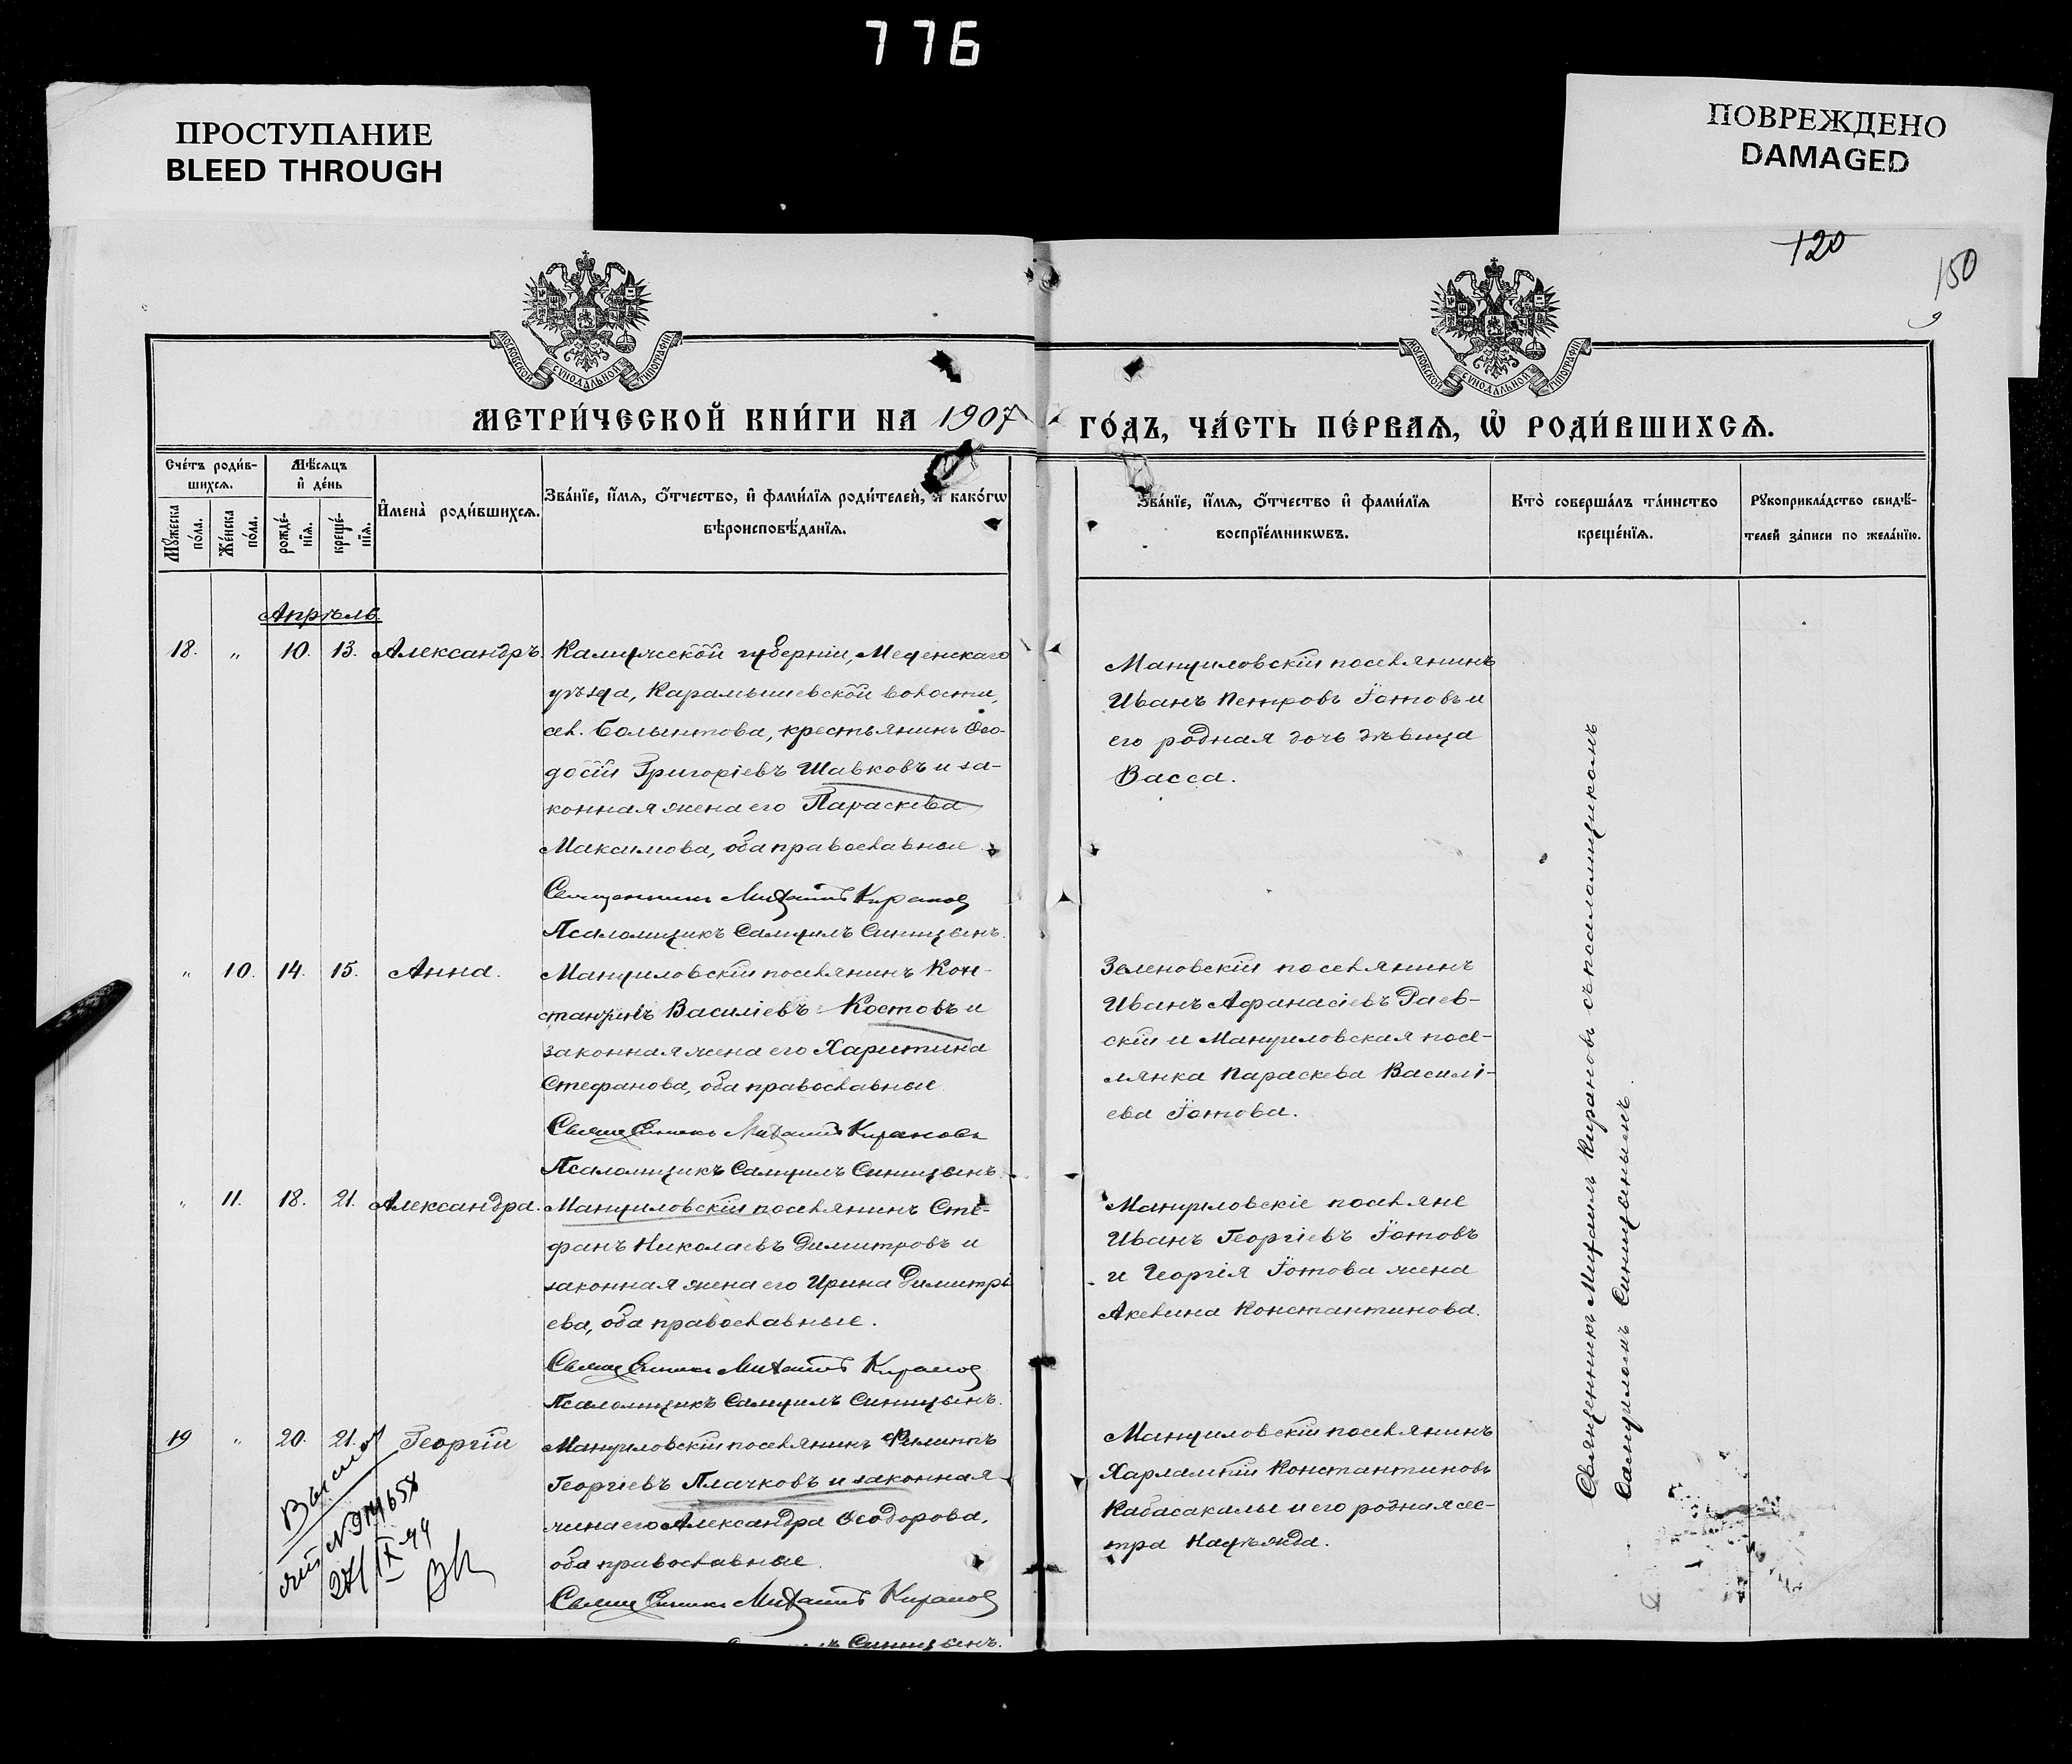 776
ПРОСТУПАНИЕ
BLEED THROUGH
ПОВРЕЖДЕНО
DAMAGED
120
150
МОСКОВСКОЙ СѴНОДАЛЬНОЙ ТИПОГРАФІИ
МОСКОВСКОЙ СѴНОДАЛЬНОЙ ТИПОГРАФІИ
МЕТРИ́ЧЕСКОЙ КНИ́ГИ НА 1907 ГО́ДЪ, ЧА́СТЬ ПЕ́РВАѦ, Ѡ РОДИ́ВШИХСѦ.
Сче́тъ роди́в-
шихсѧ.
Мꙋ́жеска по́ла.
Же́нска по́ла.
Мѣ́сѧцъ
и҆ де́нь
рожде́-
нїѧ.
креще́-
нїѧ.
И҆мена̀ роди́вшихсѧ.
Зва́нїе, и҆́мѧ, ѻ҆́тчество, и҆ фами́лїѧ роди́телей, и҆ како́гѡ
вѣроисповѣ́данїѧ.
Зва́нїе, и҆́мѧ, ѻ҆́тчество и҆ фами́лїѧ
воспрїе́мникѡвъ.
Кто̀ соверша́лъ та́инство
креще́нїѧ.
Рꙋкоприкла́дство свидѣ́-
телей за́писи по жела́нїю.
Апрѣль
18. „ 10. 13. Александръ.
Калужской губерніи, Меденскаго
уѣзда, Карамышевской волости,
сел. Болынтова, крестьянинъ Ѳео-
досій Григоріевъ Шавковъ и за-
конная жена его Параскева
Максимова, оба православные
Священникъ Михаилъ Кирановъ
Псаломщикъ Самуилъ Синицынъ.
Мануиловскій поселянинъ
Иванъ Петровъ Іотовъ и
его родная дочь дѣвица
Васса.
„ 10. 14. 15. Анна.
Мануиловскій поселянинъ Кон-
стантинъ Василіевъ Костовъ и
законная жена его Харитина
Стефанова, оба православные
Священникъ Михаилъ Кирановъ
Псаломщикъ Самуилъ Синицынъ.
Зеленовскій поселянинъ
Иванъ Афанасіевъ Раев-
скій и Мануиловская посе-
лянка Параскева Василі-
ева Іотова.
„ 11. 18. 21. Александра.
Мануиловскій поселянинъ Сте-
фанъ Николаевъ Димитровъ и
законная жена его Ирина Димитрі
ева, оба православные.
Священникъ Михаилъ Кирановъ
Псаломщикъ Самуилъ Синицынъ.
Мануиловскіе поселяне
Иванъ Георгіевъ Іотовъ
и Георгія Іотова жена
Акелина Константинова.
19 „ 20. 21. Георгій
Мануиловскій поселянинъ Филиппъ
Георгіевъ Плачковъ и законная
жена его Александра Ѳеодорова,
оба православные.
Священникъ Михаилъ Кирановъ
Синицынъ.
Мануиловскій поселянинъ
Харлампій Константиновъ
Кабасакалы и его родная сес-
тра Надѣжда.
27/IX-44
Священникъ Михаилъ Кирановъ съ псаломщикомъ
Самуиломъ Синицынымъ.